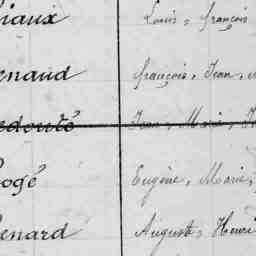 iaux Louis, françois
enaud françois, Jean,
edouté Jean, Marie,
ogé Eugène, Marie,
enard Auguste, Henri